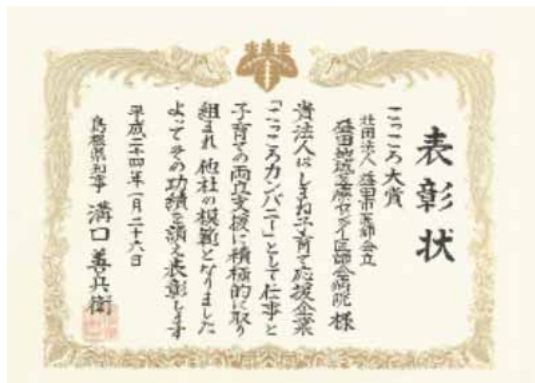 表彰状
こころ大賞
社団法人 益田市医師会立
益田地域医療センター医師会病院 様
貴法人はしまね子育て応援企業
「こっころカンパニー」として仕事と
子育ての両立支援に積極的に取り
組まれ他社の模範となりました
よってその功績を讃え表彰します
平成二十四年一月二十六日
島根県知事 溝口善兵衛